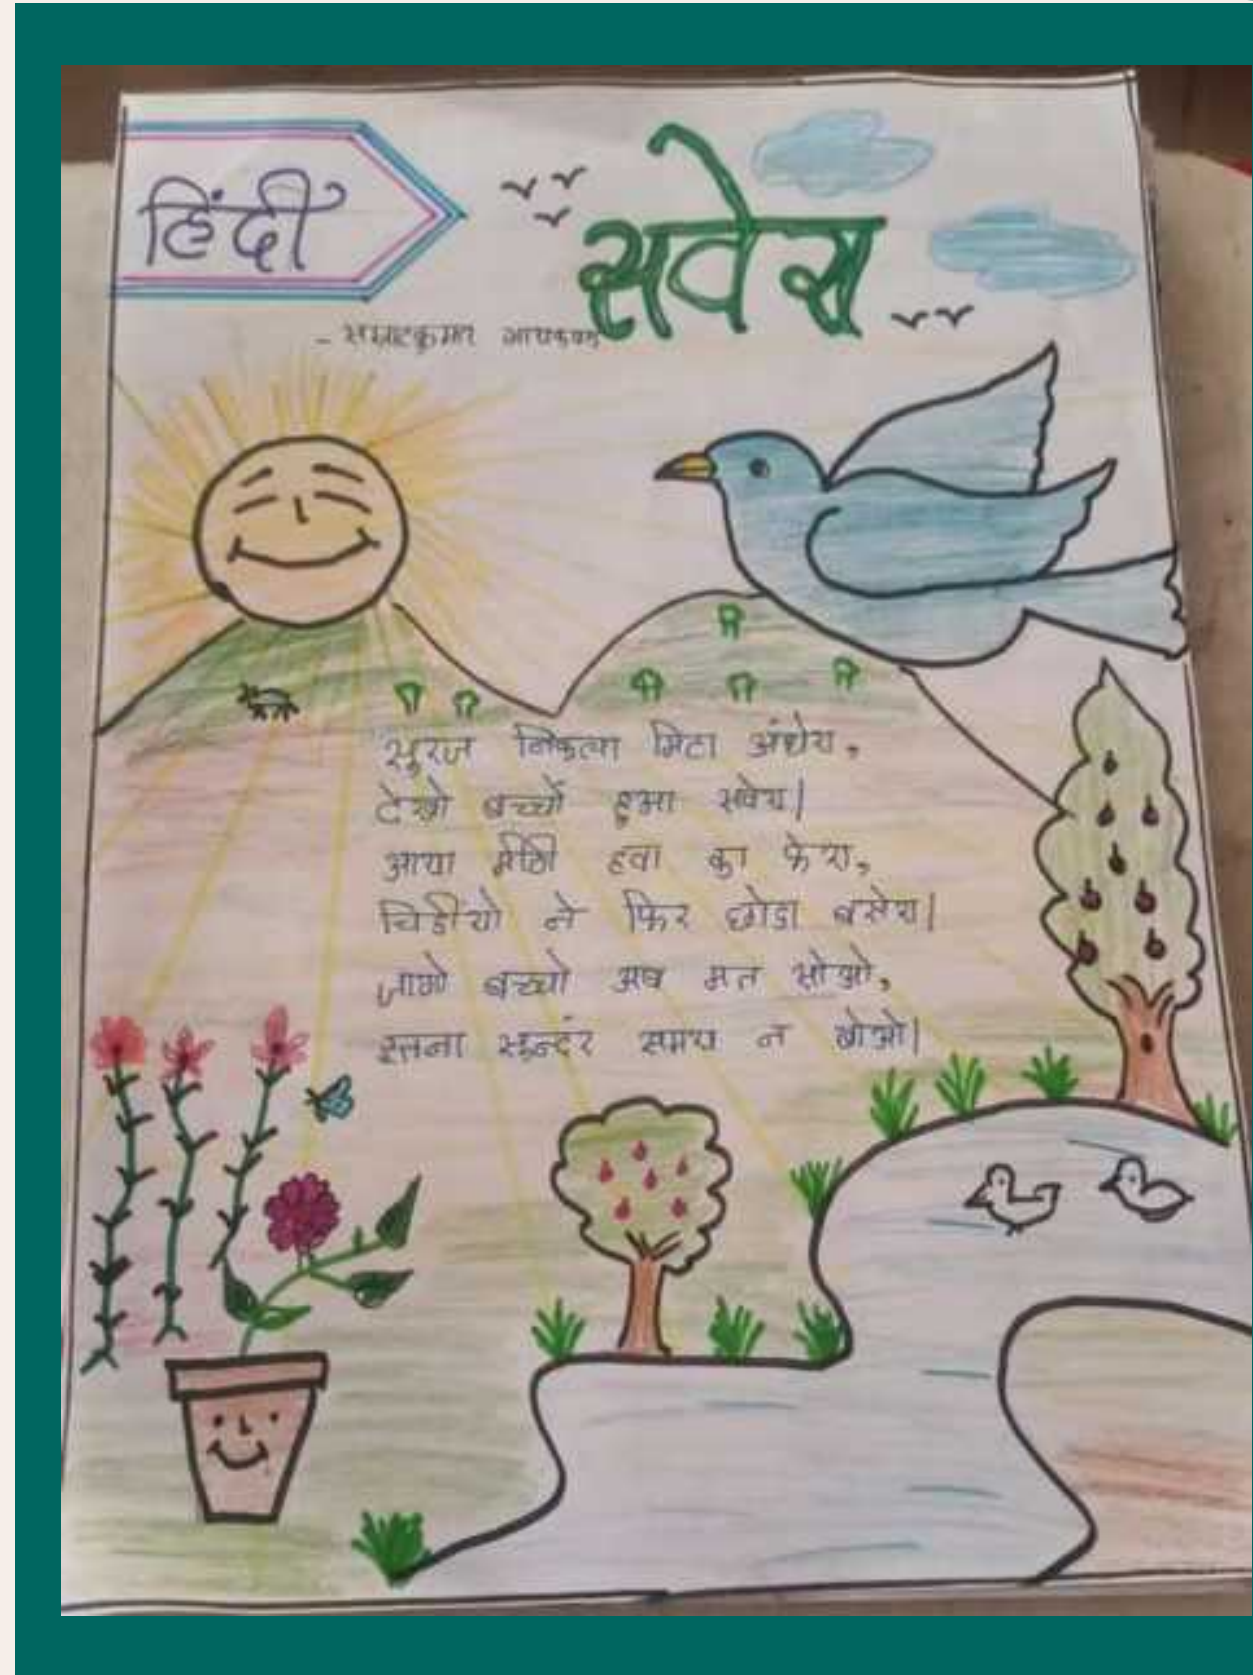 हिंदी
सवेरा
- सम्राटकुमार
सुरज निकला मिटा अंधेरा,
देखो बच्चों हुआ सवेरा|
आया मीठी हवा का फेरा,
चिडीयो ने फिर छोडा बसेरा|
जागो बच्चो अब मत सोओ,
इतना सुन्दंर समय न खोओ|